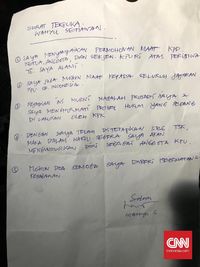 SURAT TERBUKA
WAHYU SETIAWAN
① SAYA MENYAMPAIKAN PERMOHONAN MAAF KPD
KETUA, ANGGOTA, DAN SEKJEN KPU RI ATAS PERISTIWA
YG SAYA ALAMI
② SAYA JUGA MOHON MAAF KEPADA SELURUH JAJARAN
KPU SE INDONESIA
③ INI MURNI MASALAH PRIBADI SAYA &
SAYA MENGHORMATI PROSES HUKUM YANG SEDANG
DILAKUKAN OLEH KPK
④ DENGAN SAYA TELAH DITETAPKAN SBG TSK,
MAKA DALAM WAKTU SEGERA SAYA AKAN
MENGUNDURKAN DIRI SEBAGAI ANGGOTA KPU
⑤ MOHON DOA SEMOGA SAYA DIBERI KESEHATAN &
WAHYU S
CNN
Indonesia